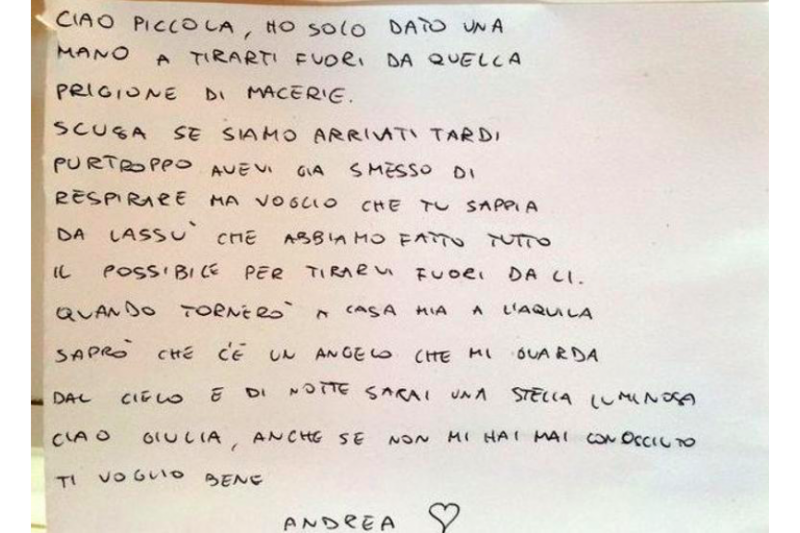 CIAO PICCOLA, HO SOLO DATO UNA
MANO A TIRARTI FUORI DA QUELLA
PRIGIONE DI MACERIE.
SCUSA SE SIAMO ARRIVATI TARDI
PURTROPPO AVEVI GIA SMESSO DI
RESPIRARE MA VOGLIO CHE TU SAPPIA
DA LASSU' CHE ABBIAMO FATTO TUTTO
IL POSSIBILE PER TIRARVI FUORI DA LI.
QUANDO TORNERO' A CASA MIA A L'AQUILA
SAPRO' CHE C'È UN ANGELO CHE MI GUARDA
DAL CIELO E DI NOTTE SARAI UNA STELLA LUMINOSA
CIAO GIULIA, ANCHE SE NON MI HAI MAI CONOSCIUTO
TI VOGLIO BENE
ANDREA ♡